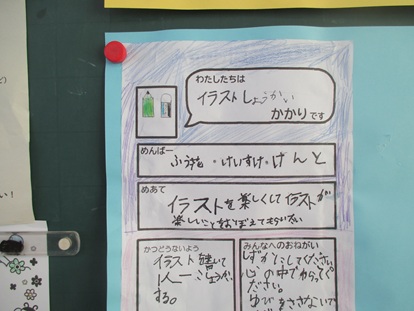 わたしたちは
イラストしょうかい
かかりです
めんばー
ふうま・けいすけ・けんと
めあて
イラストを楽しくしてイラストが
楽しいことをおぼえてもらいたい
かつどうないよう
イラストを書いて
1人一こしょうかい
する。
みんなへのおねがい
しずかにしてください
心の中でわらってく
ださい。
ゆびをささないで